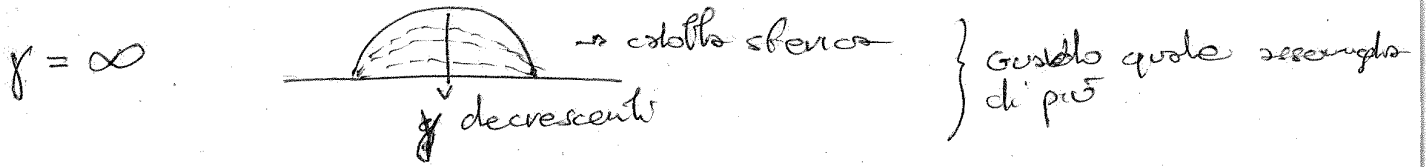 γ = ∞
→ calotta sferica
γ decrescenti
} Guardo quale assomiglia
di più